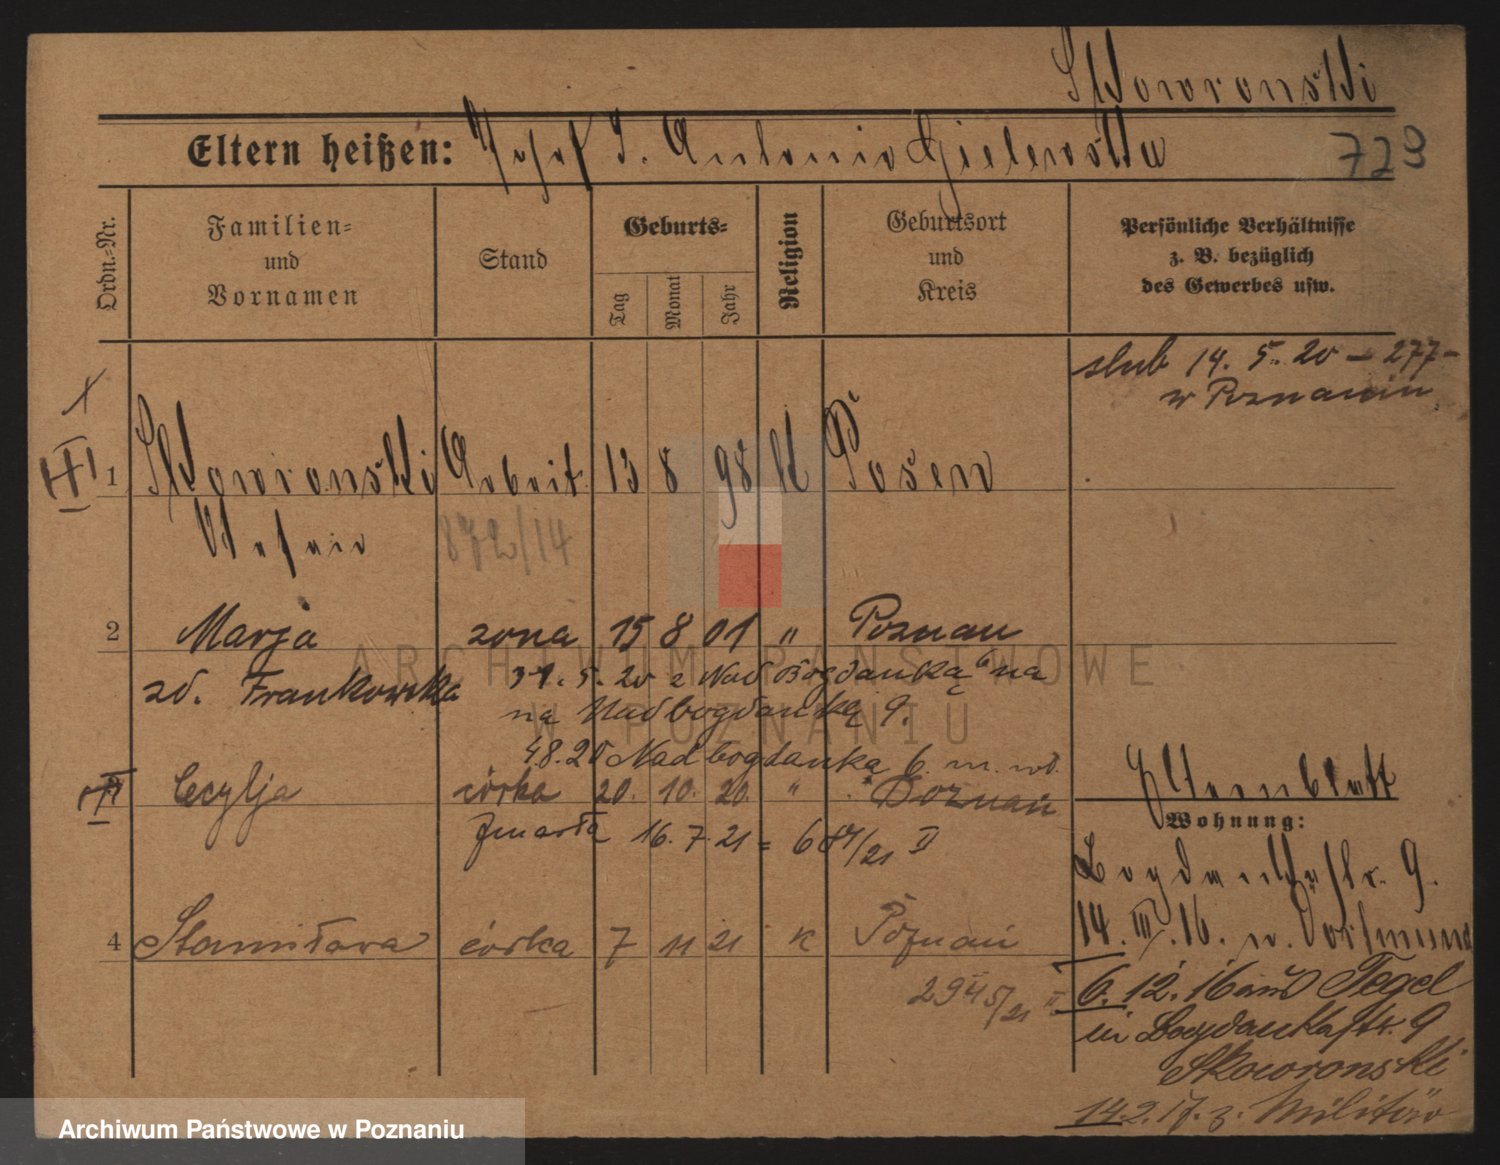 Skowronski
Eltern heißen: Josef I. Antonie Gielewska 723
Ordn.-Nr.
Familien-
und
Vornamen
Stand
Geburts-
Tag
Monat
Jahr
Religion
Geburtsort
und
Kreis
Persönliche Verhältnisse
z. B. bezüglich
des Gewerbes usw.
ślub 14. 5. 20 – 277 –
w Poznaniu
1 Skowronski Arbeit. 13 8 98 K Posen
Stefan
872/14
2 Marja żona 15 8 01 " Poznań
zd. Frankowska
31. 5. 20 z Nad Bogdanką 6 na
na Nadbogdanką 9.
4.8.20 Nadbogdanka 6. m.
Cecylja córka 20. 10. 20. " Poznań
Zmarła 16. 7. 21 = 684/21 II
Elternblatt
Wohnung:
Bogdankastr. 9.
14. III. 16. n. Dortmund
4 Stanisława córka 7 11 21 K Poznań
2945/21 II
6. 12. 16 aus Tegel
in Bogdankastr. 9
Skowronski
14.2.17. z. Militär
ARCHIWUM PAŃSTWOWE
W POZNANIU
Archiwum Państwowe w Poznaniu